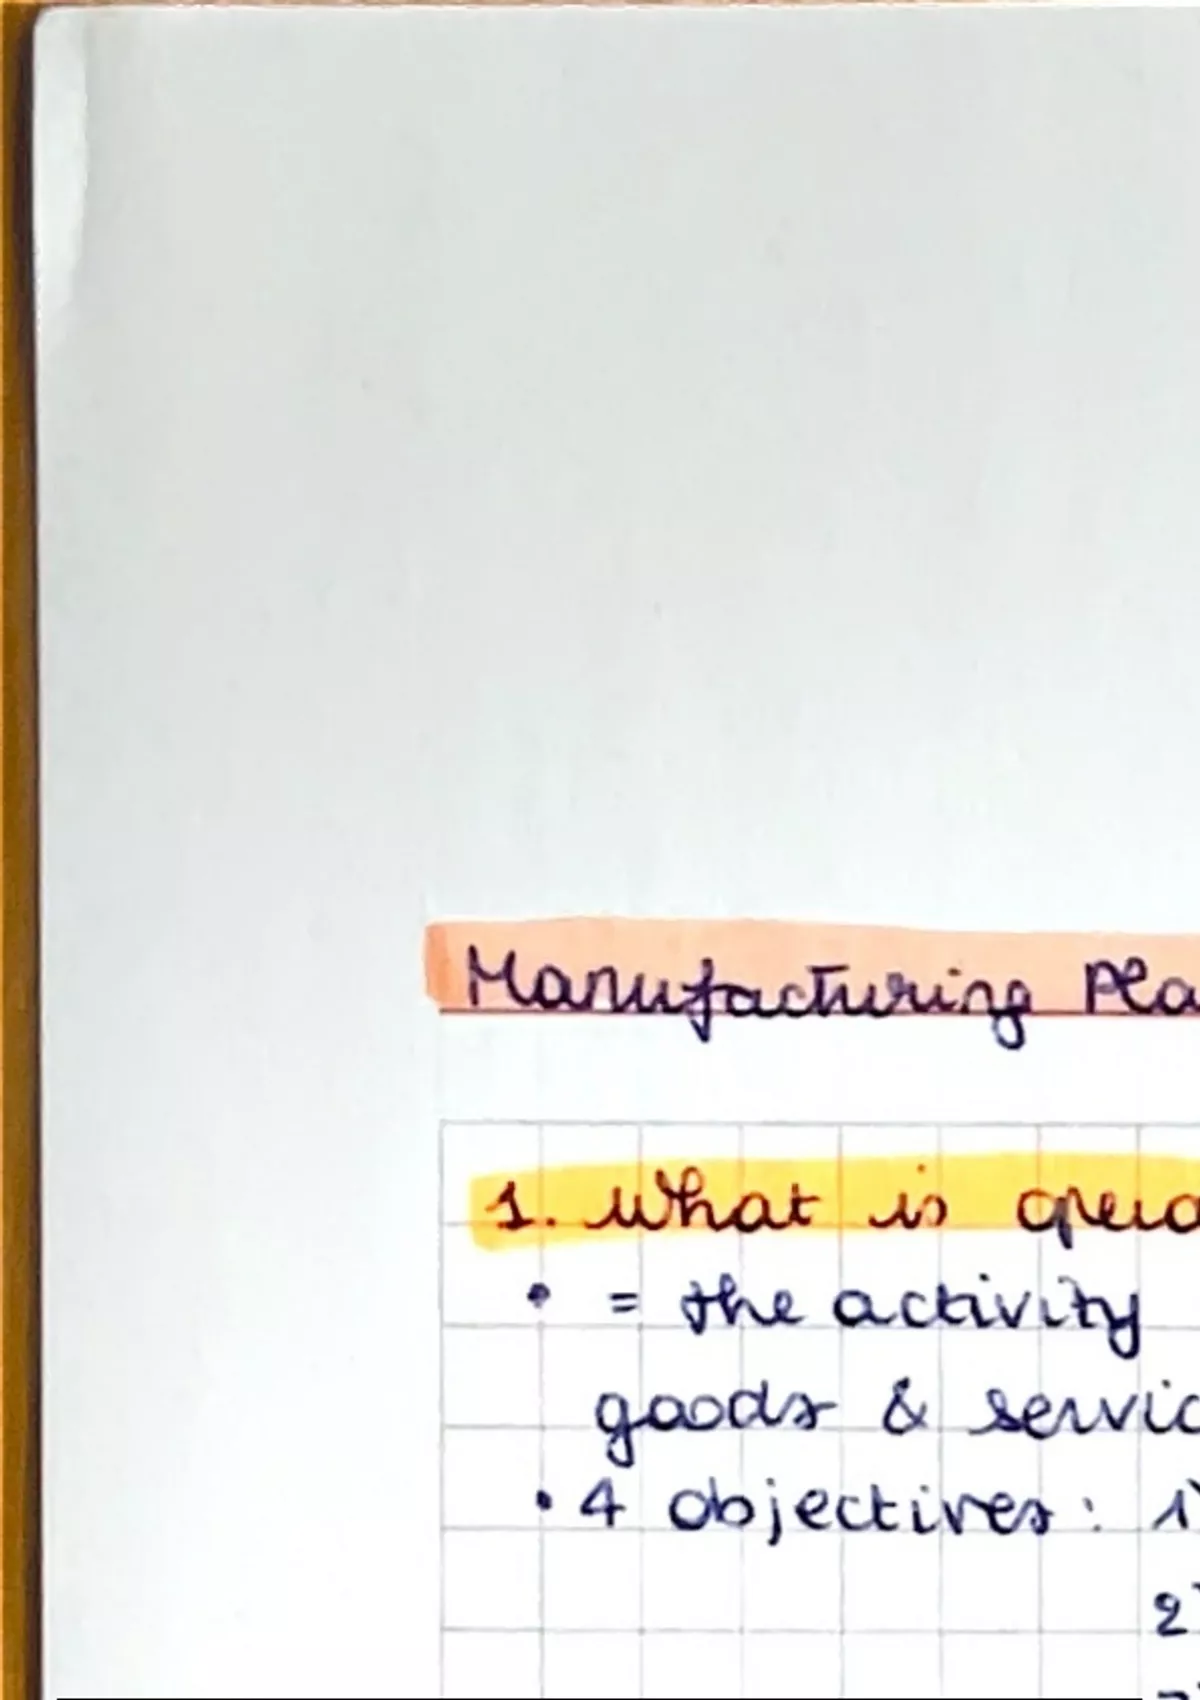 Manufacturing Pla
1. What is opera
• = the activity
goods & servic
• 4 objectives : 1)
2)